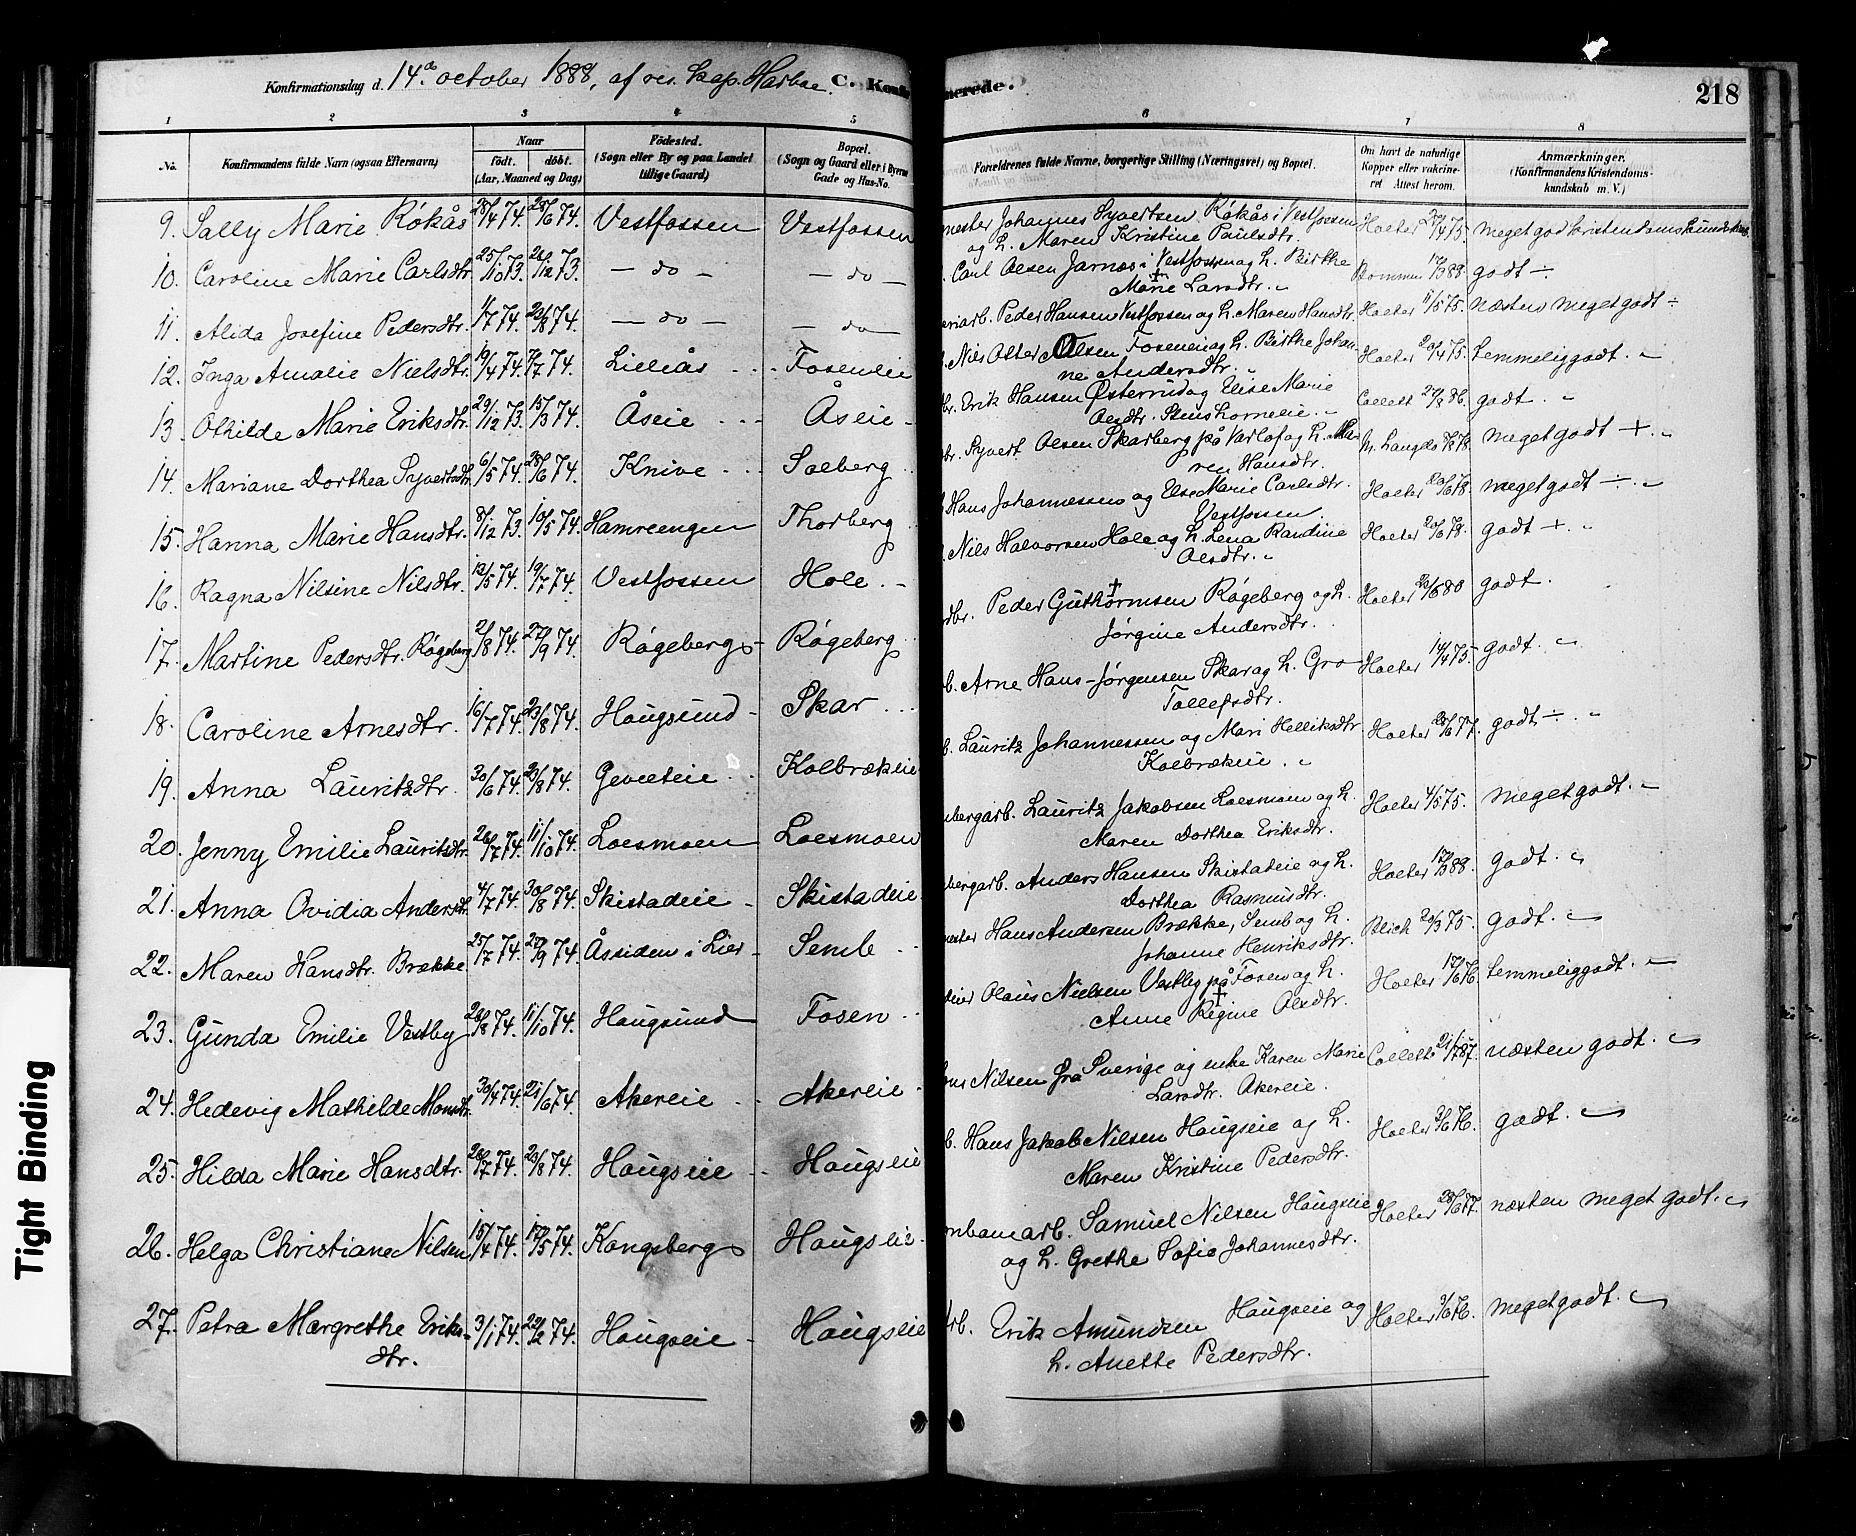 Konfirmationsdag d. 14de october 1888, af res. kap. Harboe. C. Konfir
merede. 218
1 2 3 4 5 6 7 8
No. Konfirmandens fulde Navn (ogsaa Efternavn) Naar født. døbt. (Aar, Maaned og Dag) Fødested. (Sogn eller By og paa Landet tillige Gaard) Bopæl. (Sogn og Gaard eller i Byerne Gade og Hus-No. Forældrenes fulde Navne, borgerlige Stilling (Næringsvei) og Bopæl. Om havt de naturlige Kopper eller vakcineret Attest herom. Anmærkninger. (Konfirmandens Kristendomskundskab m. V.)
9. Sally Marie Røkås 28/4 74. 28/6 74. Vestfossen Vestfossen mester Johannes Syvertsen Røkås i Vestfossen og h. Maren Kristine Paulsdtr. Holter 29/4 75. Meget god kristendomskundskab.
10. Caroline Marie Carlsdtr. 25/10 73. 26/12 73. — do — — do — Carl Olsen Jarnæs i Vestfossen og h. Birthe Marie Larsdtr. 17/3 88. godt ÷
11. Alida Josefine Pedersdtr. 1/7 74. 23/8 74. — do — — do — riarb. Peder Hansen Vestfossen og h. Maren Hansdtr. Holter 11/5 75. næsten meget godt ÷
12. Inga Amalie Nielsdtr. 19/4 74. 7/7 74. Lilleås Foseneie Nils Otter Olsen Foseneie og h. Birthe Johanne Andersdtr. Holter 20/4 75. temmelig godt. "
13. Othilde Marie Eriksdtr. 29/12 73. 15/3 74. Åseie Åseie Erik Hansen Østerud og Elise Marie Olsdtr. Stenshorneie. " Collett 27/8 86. godt. "
14. Mariane Dorthea Syvertsdtr. 6/5 74. 28/6 74. Knive Solberg br. Syvert Olsen Skarberg på Varlo og h. Maren Hansdtr. meget godt +. "
15. Hanna Marie Hansdtr. 8/12 73. 10/5 74. Hamreengen Thorberg Hans Johannessen og Else Marie Carlsdtr. Vestfossen. Holter 20/6 78. meget godt ÷. "
16. Ragna Nilsine Nilsdtr. 12/5 74. 19/7 74. Vestfossen Hole Nils Halvorsen Hole og h. Lena Randine Olsdtr. " Holter 20/6 78. godt +. "
17. Martine Pedersdtr. Røgeberg 2/8 74. 27/9 74. Røgeberg Røgeberg dbr. Peder Guthormsen Røgeberg og h. Jørgine Andersdtr. Holter 22/6 80 godt.
18. Caroline Arnesdtr. 16/7 74. 23/8 74. Hougsund Skar b. Arne Hans-Jørgensen Skar og h. Gro Tollefsdtr. Holter 14/4 75. godt. "
19. Anna Lauritzdtr. 30/6 74. 20/8 74. Kolbrækeie b. Lauritz Johannessen og Mari Helliksdtr. Kolbrækeie. " Holter 28/6 77. godt ÷. "
20. Jenny Emilie Lauritsdtr. 26/7 74. 11/10 74. Loesmoen Loesmoen bergarb. Lauritz Jakobsen Loesmoen og h. Maren Dorthea Eriksdtr. Holter 4/5 75. meget godt. "
21. Anna Ovidia Andersdtr. 4/7 74. 30/8 74. Skistadeie Skistadeie bergarb. Anders Hansen Skistadeie og h. Dorthea Rasmusdtr. Holter 17/3 88. godt. "
22. Maren Hansdtr. Brække 25/7 74. 27/9 74. Åssiden i Lier Semb mester Hans Andersen Brække, Semb og h. Johanne Henriksdtr. Blich 20/3 75. godt. "
23. Gunda Emilie Vestby 26/8 74. 11/10 74. Hougsund Fosen Olaus Nielsen Vestby på Fosen og h. Anne Regine Olsdtr. Holter 17/6 76. temmelig godt. "
24. Hedevig Mathilde Monsdtr. 30/4 74. 21/6 74. Akereie Akereie ons Nilsen fra Sverige og enke Karen Marie Larsdtr. Akereie. Collett 21/7 87. næsten godt. "
25. Hilda Marie Hansdtr. 26/7 74. 20/8 74. Hougseie Hougseie b. Hans Jakob Nilsen Hougseie og h. Maren Kristine Pedersdtr. Holter 9/6 76. godt. "
26. Helga Christiane Nilsen 15/4 74. 17/5 74. Kongsberg Hougseie nbanearb. Samuel Nilsen Hougseie og h. Grethe Sofie Johannesdtr. Holter 28/6 77. næsten meget godt. "
27. Petra Margrethe Eriksdtr. 3/1 74. 22/2 74. Hougseie Hougseie arb. Erik Amundsen Hougseie og h. Anette Pedersdtr. Holter 9/6 76. meget godt. "
Tight Binding